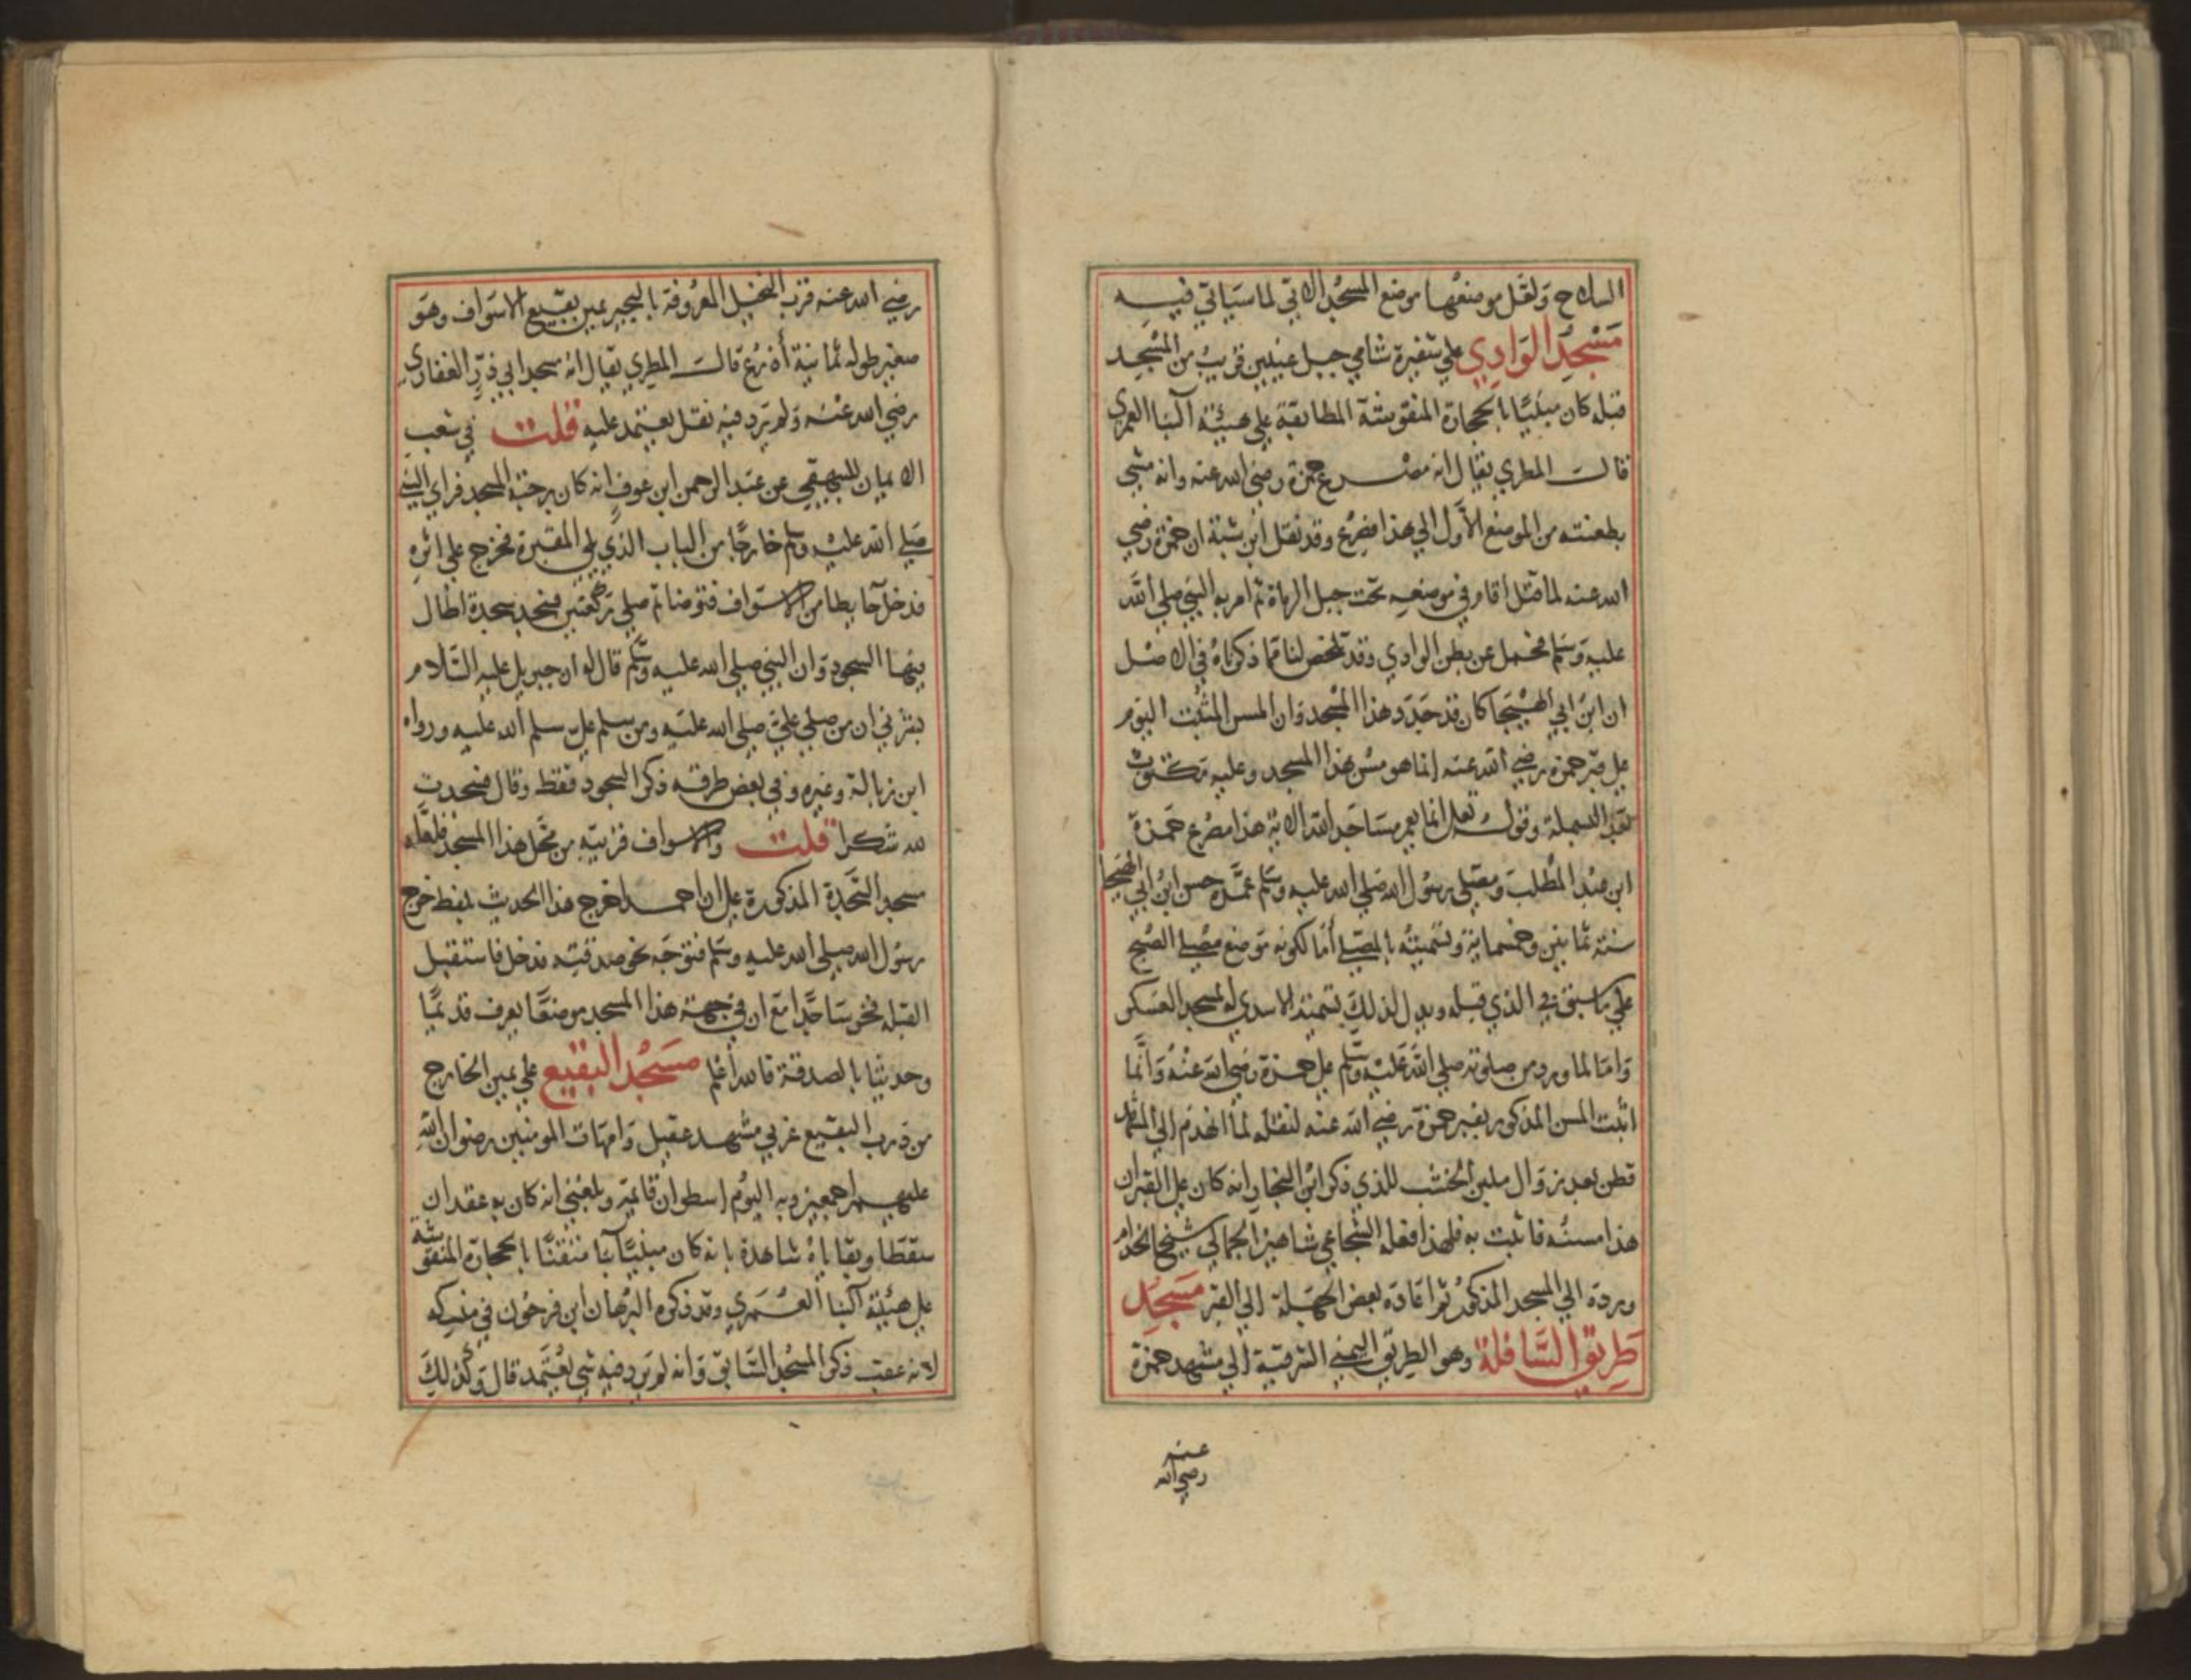 السلاح ولعل موضعها موضع المسجد الاتي لما سياتي فيه
مسجد الوادي علي شفيرة شامي جبل عينين قريب من المسجد
قبله كان مبنيا بالحجارة المنقوشة المطابقة علي هيئة البنا العمري
قال المطري يقال انه مصرع حمزة رضي الله عنه وانه مشي
بطعنته من الموضع الأول الي هذا فصرع وقد نقل ابن شبة ان حمزة رضي
الله عنه لما قتل أقام في موضعه تحت جبل الرماة ثم امر به النبي صلي الله
عليه وسلم فحمل عن بطن الوادي وقد تلخص لنا مما ذكرناه في الاصل
ان ابن ابي الهيجا كان قد جدد هذا المسجد وان المسن المثبت اليوم
علي قبر حمزة رضي الله عنه انما هو مسن هذا المسجد وعليه مكتوب
بعد البسملة وقول انما يعمر مساجد الله الاية هذا مصرع حمزة
ابن عبد المطلب ومصلي رسول الله صلي الله عليه وسلم عمره حسن ابن ابي الهيجا
سنة ثمانين وخمسماية وتسميته بالمصلي أما لكونه موضع مصلي الصبح
علي ما سبق في الذي قبله ويدل لذلك تسمية الاسدي له بمسجد العسكر
واما لما ورد من صلوته صلي الله عليه وسلم علي حمزة رضي الله عنه وانما
اثبت المسن المذكور بقبر حمزة رضي الله عنه لنقله لما انهدم الي المشهد
فظن بعد زوال ملبن الخشب الذي ذكر ابن النجار انه كان علي القبر ان
هذا مسنه فاثبت به فلهذا افعله الشجاعي شاهين الجمالي شيخ الخدام
ورده الي المسجد المذكور ثم اعاده بعض الجهلة الي القبر مسجد
طريق السافلة وهو الطريق اليمني الشرقية الي مشهد حمزة
عنه
رضي الله
رضي الله عنه قرب النخيل المعروفة بالبحير يمين بقيع الاسواف وهو
صغير طوله ثمانية أذرع قال المطري يقال انه مسجد ابي ذر الغفاري
رضي الله عنه ولم يرد فيه نقل يعتمد عليه قلت في شعب
الايمان للبيهقي عن عبد الرحمن ابن عوف انه كان برحبة المسجد فراي النبي
صلي الله عليه وسلم خارجا من الباب الذي يلي المقبرة فخرج علي اثره
فدخل حايطا من الاسواف فتوضا ثم صلي ركعتين فسجد سجدة اطال
فيها السجود وان النبي صلي الله عليه وسلم قال له ان جبريل عليه السلام
بشرني ان من صلي علي صلي الله عليه ومن سلم علي سلم الله عليه ورواه
ابن زبالة وغيره وفي بعض طرقه ذكر السجود فقط وقال فسجدت
لله شكرا قلت والاسواف قريبه من محل هذا المسجد فلعله
مسجد السجدة المذكورة علي ان احمد اخرج هذا الحديث بلفظ خرج
رسول الله صلي الله عليه وسلم فتوجه نحو صدقته فدخل فاستقبل
القبله فخر ساجدا مع ان في جهة هذا المسجد موضعا يعرف قديما
وحديثا بالصدقة فالله أعلم مسجد البقيع علي يمين الخارج
من درب البقيع غربي مشهد عقيل وامهات المومنين رضوان الله
عليهم اجمعين وبه اليوم اسطوان قائمة وبلغني انه كان به عقدان
سقطا وبقاياه شاهدة بانه كان مبنيا بنا متقنا بالحجارة المنقوشة
علي هيئة البنا العمري وقد ذكره البرهان ابن فرحون في منسكه
لانه عقب ذكر المسجد السابق وانه لم يرد فيه شي يعتمد قال وكذلك